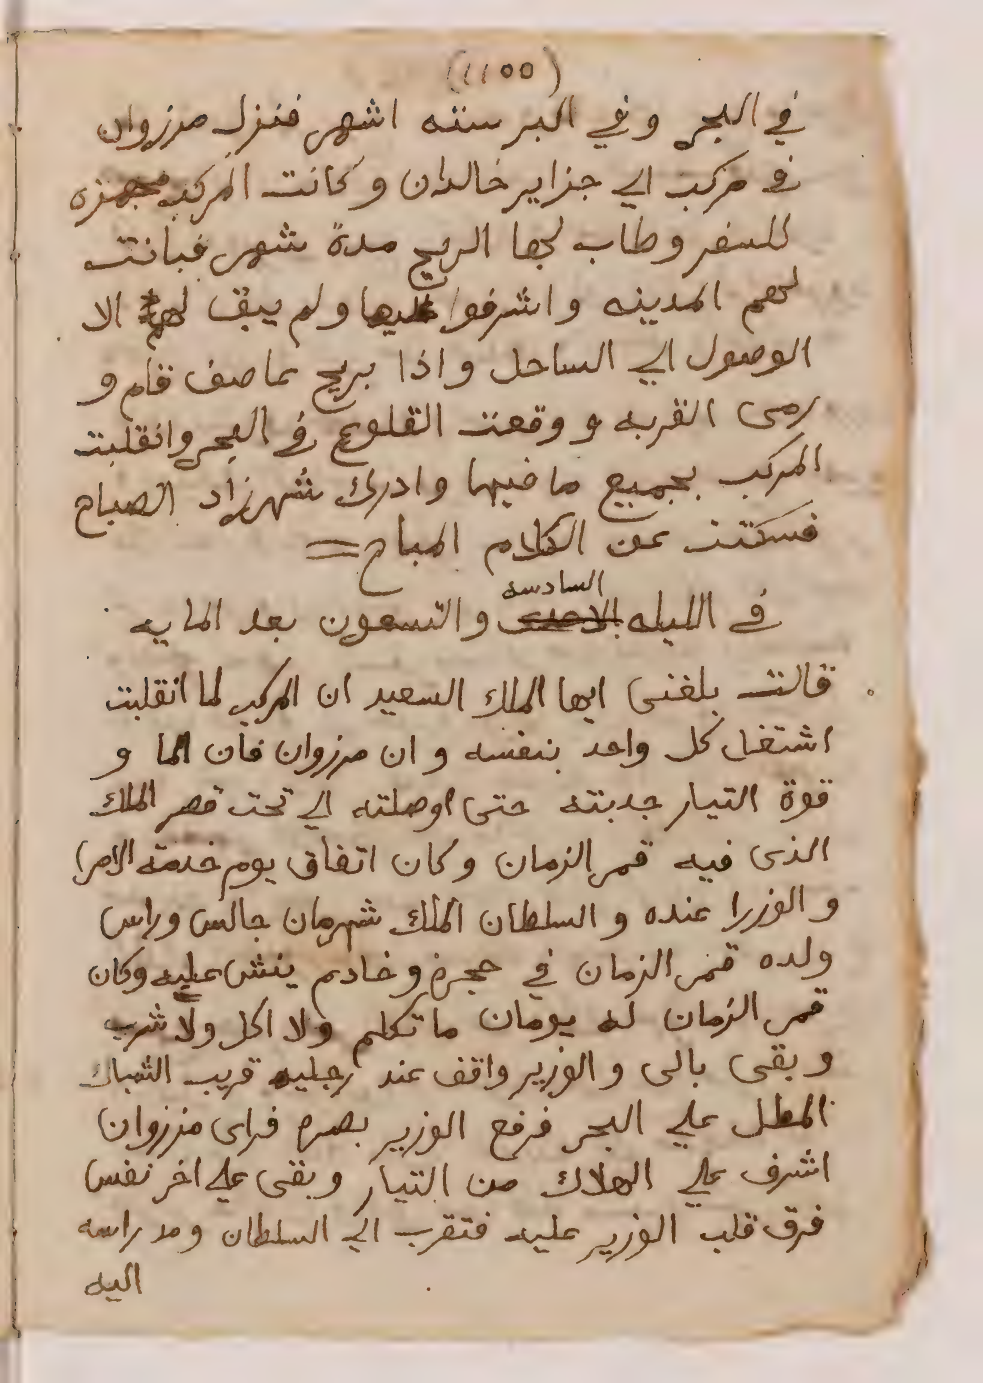 (١١٥٥)
في البحر وفي البر سته اشهر فنزل مرزوان
في مركب الي جزاير خالدان وكانت المركب مجهزه
للسفر وطاب لها الريح مدة شهر فبانت
لهم المدينه واشرفوا عليها ولم يبق لهم الا
الوصول الي الساحل واذا بريح عاصف قام و
رمى القريه و وقعت القلوع في البحر وانقلبت
المركب بجميع ما فيها وادرك شهرزاد الصباح
فسكتت عن الكلام المباح
السادسه
في الليله الاحدى والتسعون بعد المايه
قالت بلغنى ايها الملك السعيد ان المركب لما انقلبت
اشتغل كل واحد بنفسه و ان مرزوان فان الما و
قوة التيار جدبته حتى اوصلته الي تحت قصر الملك
الذى فيه قمر الزمان وكان اتفاق يوم خدمة الامرا
و الوزرا عنده و السلطان الملك شهرمان جالس وراس
ولده قمر الزمان في حجره وخادم ينش عليه وكان
قمر الزمان له يومان ما تكلم ولا اكل ولا شرب
وبقى بالى والوزير واقف عند رجليه قريب الشباك
المطل علي البحر فرفع الوزير بصره فراى مرزوان
اشرف علي الهلاك من التيار وبقى علي اخر نفس
فرق قلب الوزير عليه فتقرب الي السلطان ومد راسه
اليه